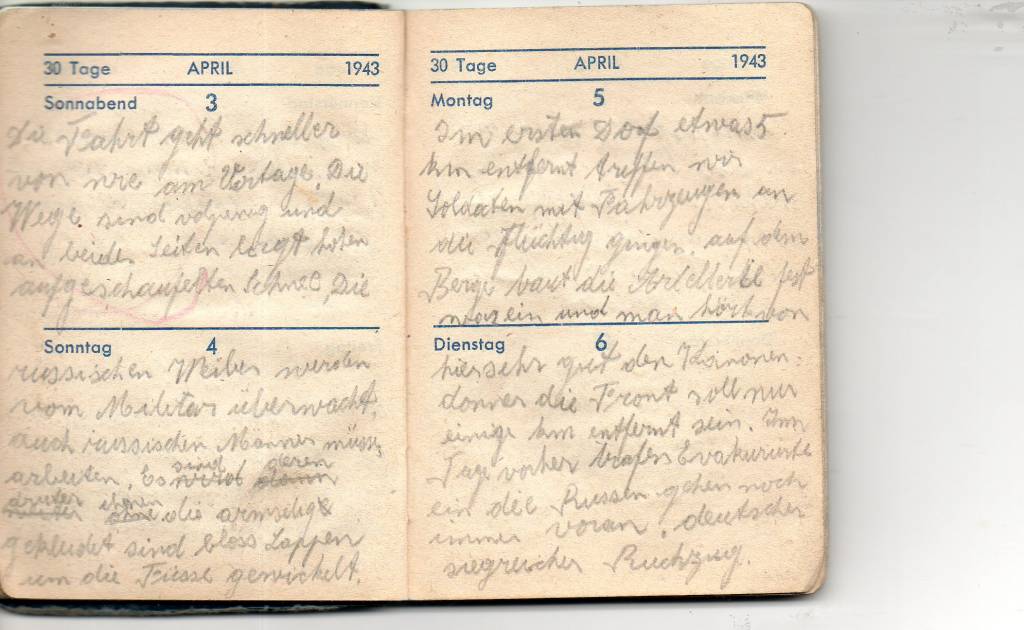 30 Tage APRIL 1943
Sonnabend 3
Die Fahrt geht schneller
von wie am Vortage. Die
Wege sind und
an beiden Seiten liegt hohen
aufgeschaufelten Schnee, Die
Sonntag 4
russischen Weiber werden
vom Militär überwacht,
auch russischen Männer müss.
arbeiten. Es sind deren
die armselige
gekleidet sind bloss Lappen
um die Füsse gewickelt.
30 Tage APRIL 1943
Montag 5
Im ersten Dorf etwas 5
km entfernt treffen wir
Soldaten mit Fahrzeugen an
die flüchtig gingen. auf dem
Berge baut die Artellerie fest
ein und man hört von
Dienstag 6
hier sehr gut den Kanonen:
donner die Front soll nur
einige km entfernt sein. Im
Tage vorher trafen Evakuirte
ein die Russen gehen noch
immer voran! deutscher
siegreicher Ruckzug.